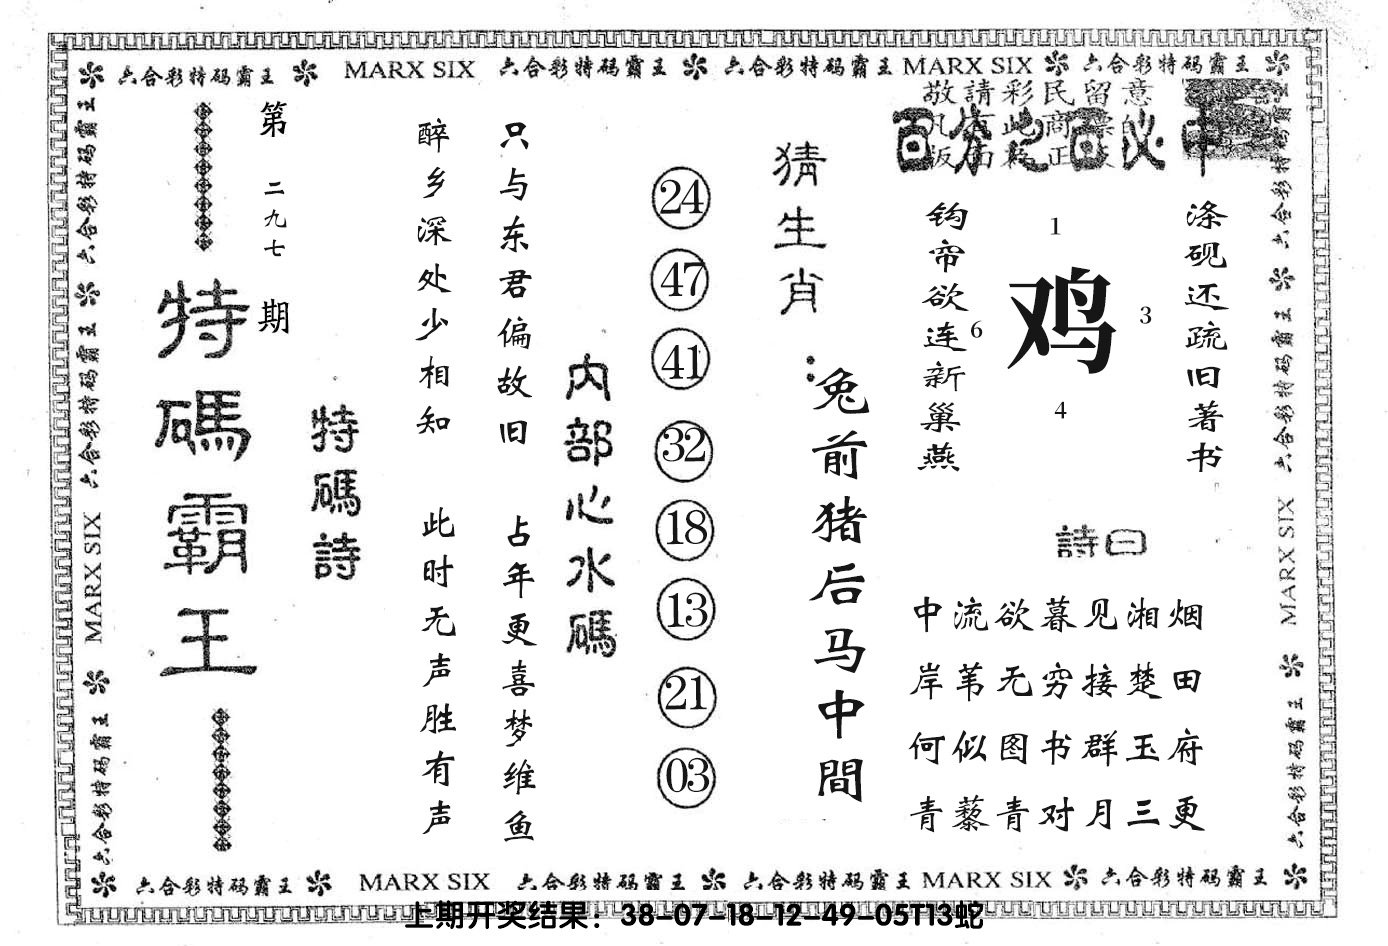 六合彩特码霸王 MARX SIX 六合彩特码霸王 六合彩特码霸王 MARX SIX 六合彩特码霸王
六合彩特码霸王 六合彩特码霸王 MARX SIX 六合彩特码霸王
第二九七期
特碼霸王
特碼詩
醉乡深处少相知
此时无声胜有声
只与东君偏故旧
占年更喜梦维鱼
内部心水碼
24
47
41
32
18
13
21
03
猜生肖：
兔前猪后马中間
敬請彩民留意
百分之百必中
钩帘欲连新巢燕
1
6
鸡
3
4
涤砚还疏旧著书
詩曰
中流欲暮见湘烟
岸苇无穷接楚田
何似图书群玉府
青藜青对月三更
六合彩特码霸王 六合彩特码霸王 MARX SIX 六合彩特码霸王
六合彩特码霸王 MARX SIX 六合彩特码霸王 六合彩特码霸王 MARX SIX 六合彩特码霸王
上期开奖结果：38-07-18-12-49-05T13蛇